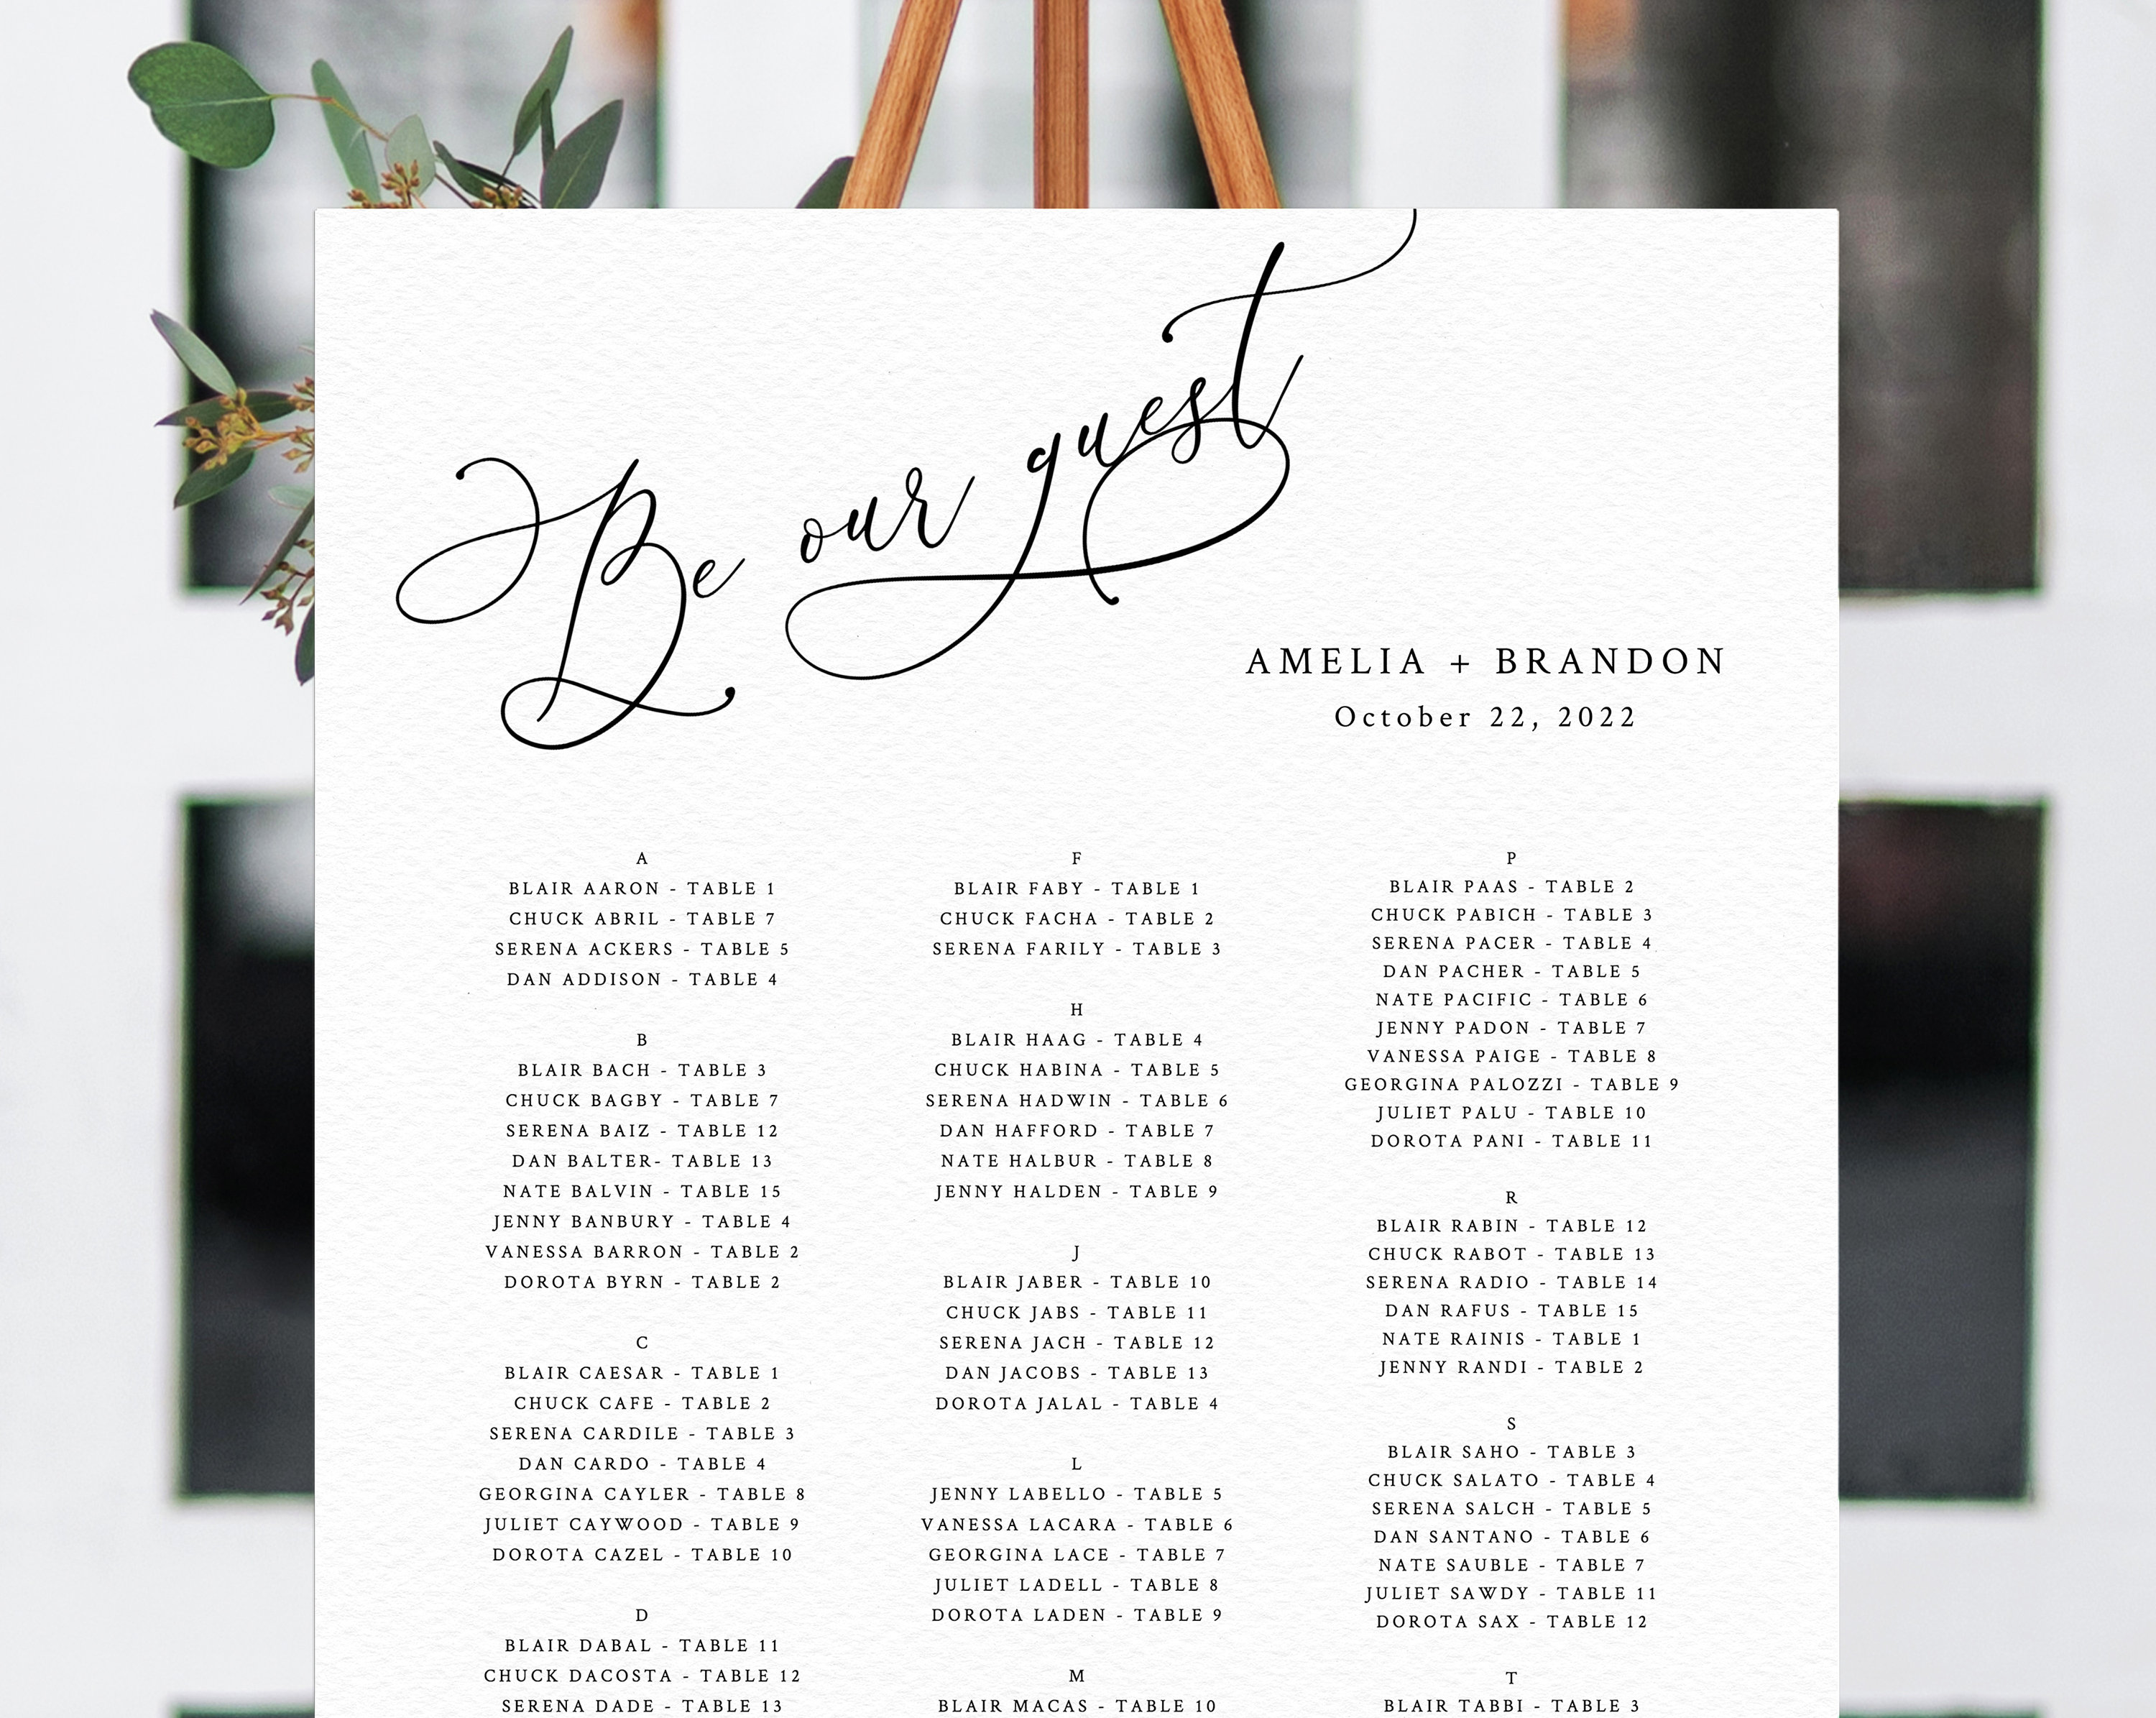 Be our guest
AMELIA + BRANDON
October 22, 2022
A
BLAIR AARON - TABLE 1
CHUCK ABRIL - TABLE 7
SERENA ACKERS - TABLE 5
DAN ADDISON - TABLE 4
B
BLAIR BACH - TABLE 3
CHUCK BAGBY - TABLE 7
SERENA BAIZ - TABLE 12
DAN BALTER- TABLE 13
NATE BALVIN - TABLE 15
JENNY BANBURY - TABLE 4
VANESSA BARRON - TABLE 2
DOROTA BYRN - TABLE 2
C
BLAIR CAESAR - TABLE 1
CHUCK CAFE - TABLE 2
SERENA CARDILE - TABLE 3
DAN CARDO - TABLE 4
GEORGINA CAYLER - TABLE 8
JULIET CAYWOOD - TABLE 9
DOROTA CAZEL - TABLE 10
D
BLAIR DABAL - TABLE 11
CHUCK DACOSTA - TABLE 12
SERENA DADE - TABLE 13
F
BLAIR FABY - TABLE 1
CHUCK FACHA - TABLE 2
SERENA FARILY - TABLE 3
H
BLAIR HAAG - TABLE 4
CHUCK HABINA - TABLE 5
SERENA HADWIN - TABLE 6
DAN HAFFORD - TABLE 7
NATE HALBUR - TABLE 8
JENNY HALDEN - TABLE 9
J
BLAIR JABER - TABLE 10
CHUCK JABS - TABLE 11
SERENA JACH - TABLE 12
DAN JACOBS - TABLE 13
DOROTA JALAL - TABLE 4
L
JENNY LABELLO - TABLE 5
VANESSA LACARA - TABLE 6
GEORGINA LACE - TABLE 7
JULIET LADELL - TABLE 8
DOROTA LADEN - TABLE 9
M
BLAIR MACAS - TABLE 10
P
BLAIR PAAS - TABLE 2
CHUCK PABICH - TABLE 3
SERENA PACER - TABLE 4
DAN PACHER - TABLE 5
NATE PACIFIC - TABLE 6
JENNY PADON - TABLE 7
VANESSA PAIGE - TABLE 8
GEORGINA PALOZZI - TABLE 9
JULIET PALU - TABLE 10
DOROTA PANI - TABLE 11
R
BLAIR RABIN - TABLE 12
CHUCK RABOT - TABLE 13
SERENA RADIO - TABLE 14
DAN RAFUS - TABLE 15
NATE RAINIS - TABLE 1
JENNY RANDI - TABLE 2
S
BLAIR SAHO - TABLE 3
CHUCK SALATO - TABLE 4
SERENA SALCH - TABLE 5
DAN SANTANO - TABLE 6
NATE SAUBLE - TABLE 7
JULIET SAWDY - TABLE 11
DOROTA SAX - TABLE 12
T
BLAIR TABBI - TABLE 3